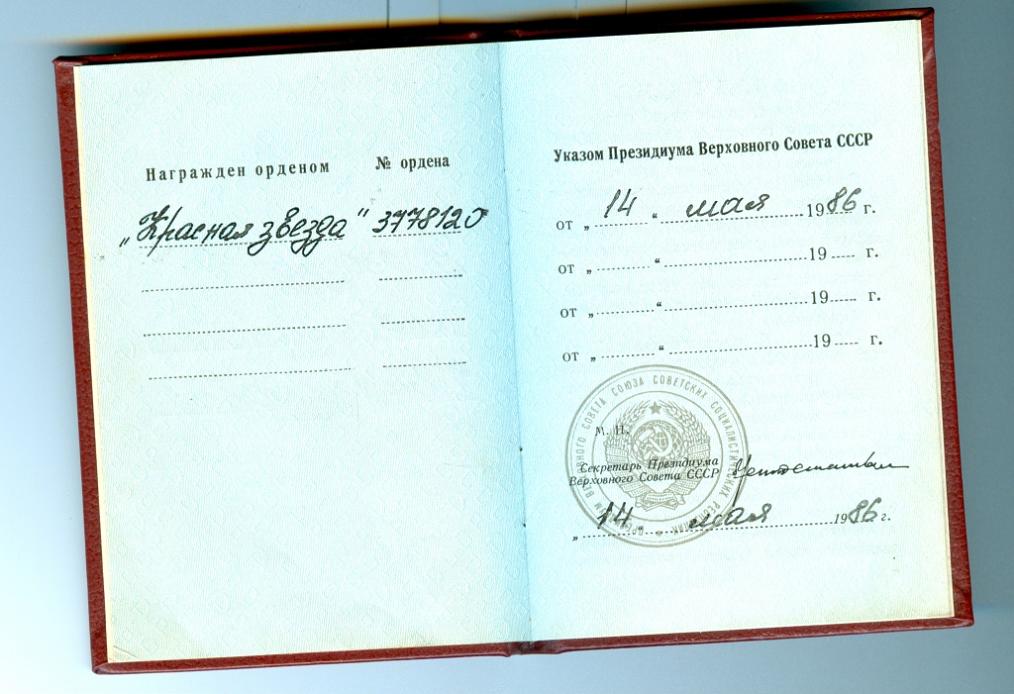 Награжден орденом № ордена
„Красная звезда" 3778120
Указом Президиума Верховного Совета СССР
от „ 14 “ мая 1986 г.
от „ “ 19 г.
от „ “ 19 г.
от „ “ 19 г.
ПРЕЗИДИУМ ВЕРХОВНОГО СОВЕТА СОЮЗА СОВЕТСКИХ СОЦИАЛИСТИЧЕСКИХ РЕСПУБЛИК
М. П.
Секретарь Президиума
Верховного Совета СССР
„ 14 мая 1986 г.